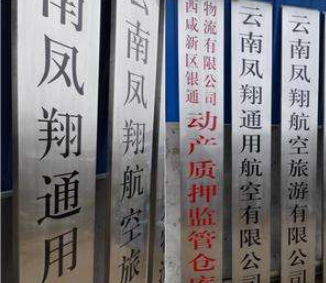 云南凤翔通用
云南凤翔航空旅
物流有限公司
西咸新区银通
动产质押监管仓库
云南凤翔通用航空有限公司
云南凤翔航空旅游有限公司